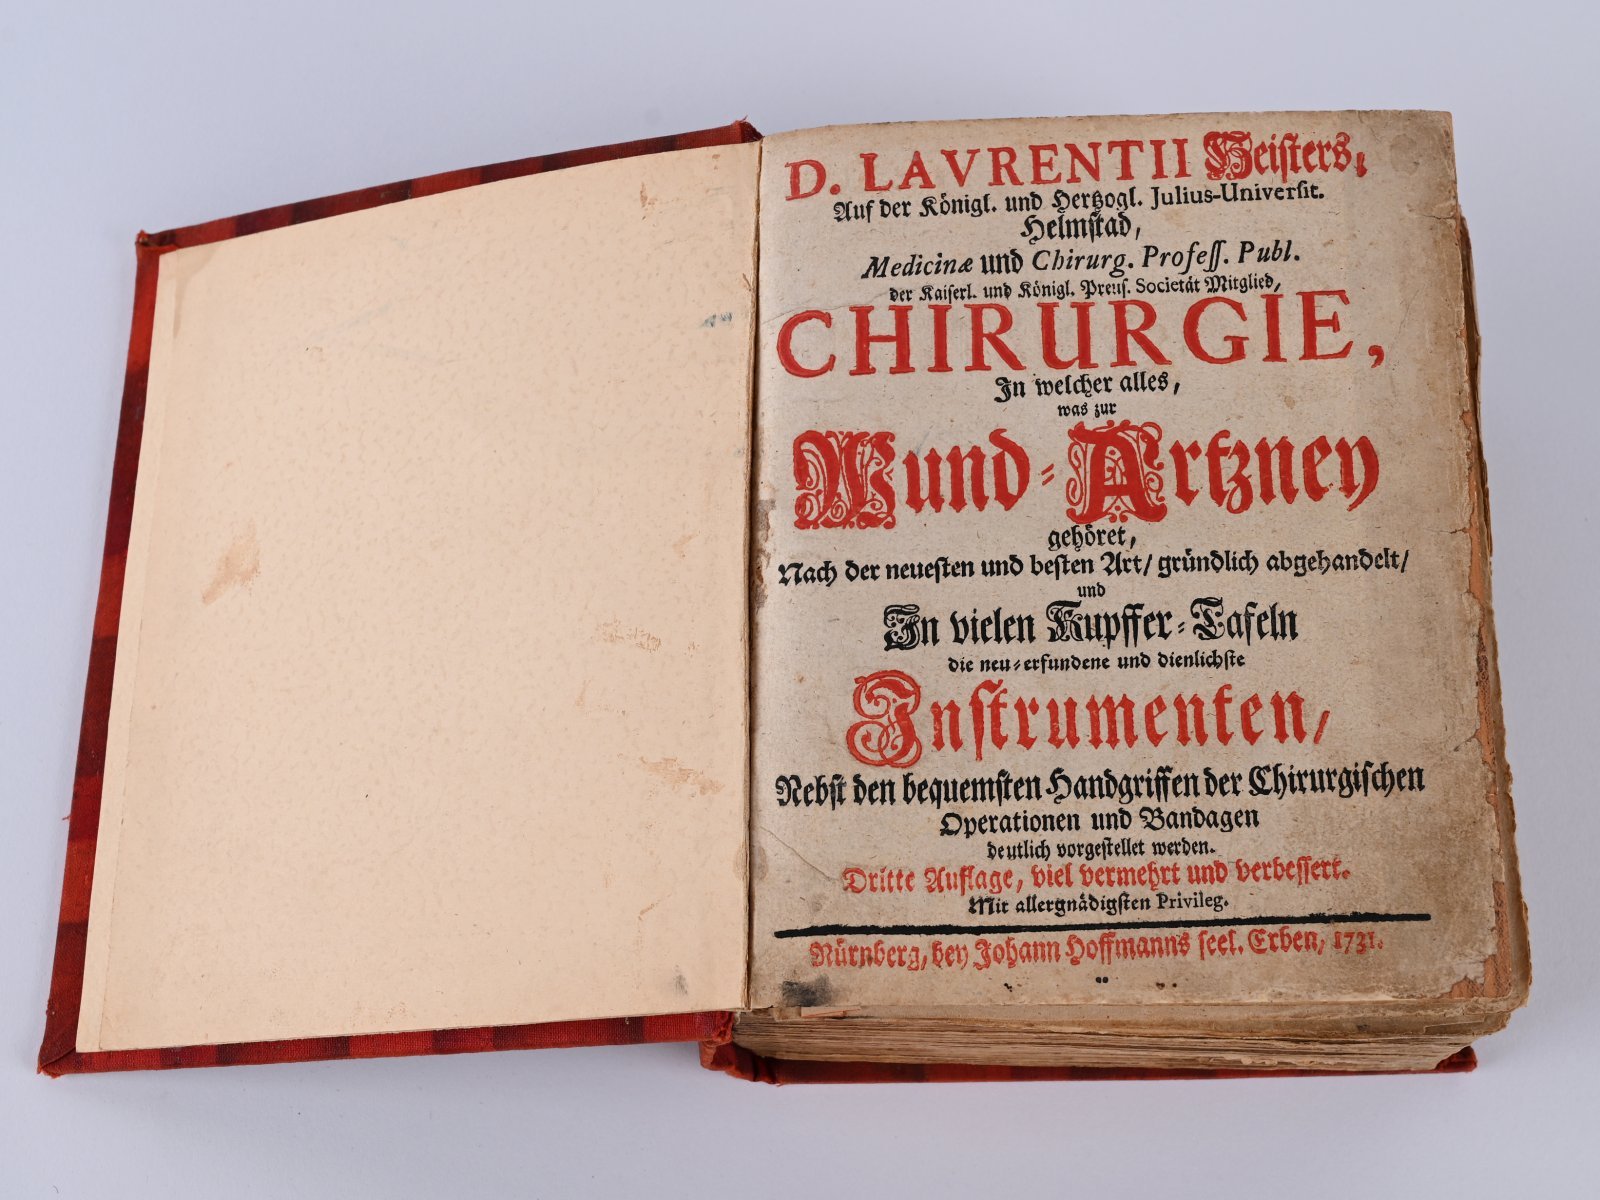 D. LAVRENTII Heisters,
Auf der Königl. und Hertzogl. Julius-Universit.
Helmstad,
Medicinæ und Chirurg. Profeſſ. Publ.
der Kaiſerl. und Königl. Preuſ. Societät Mitglied,
CHIRURGIE,
In welcher alles,
was zur
Wund-Artzney
gehöret,
Nach der neueſten und beſten Art/ gründlich abgehandelt/
und
In vielen Kupffer-Tafeln
die neu-erfundene und dienlichſte
Inſtrumenten/
Nebſt den bequemſten Handgriffen der Chirurgiſchen
Operationen und Bandagen
deutlich vorgeſtellet werden.
Dritte Auflage, viel vermehrt und verbeſſert.
Mit allergnädigſten Privileg.
Nürnberg, bey Johann Hoffmanns ſeel. Erben, 1731.